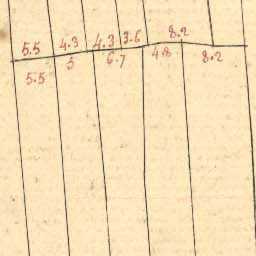 5.5 4.3 4.3 3.6 8.2
5.5 3 6.7 4.8 8.2